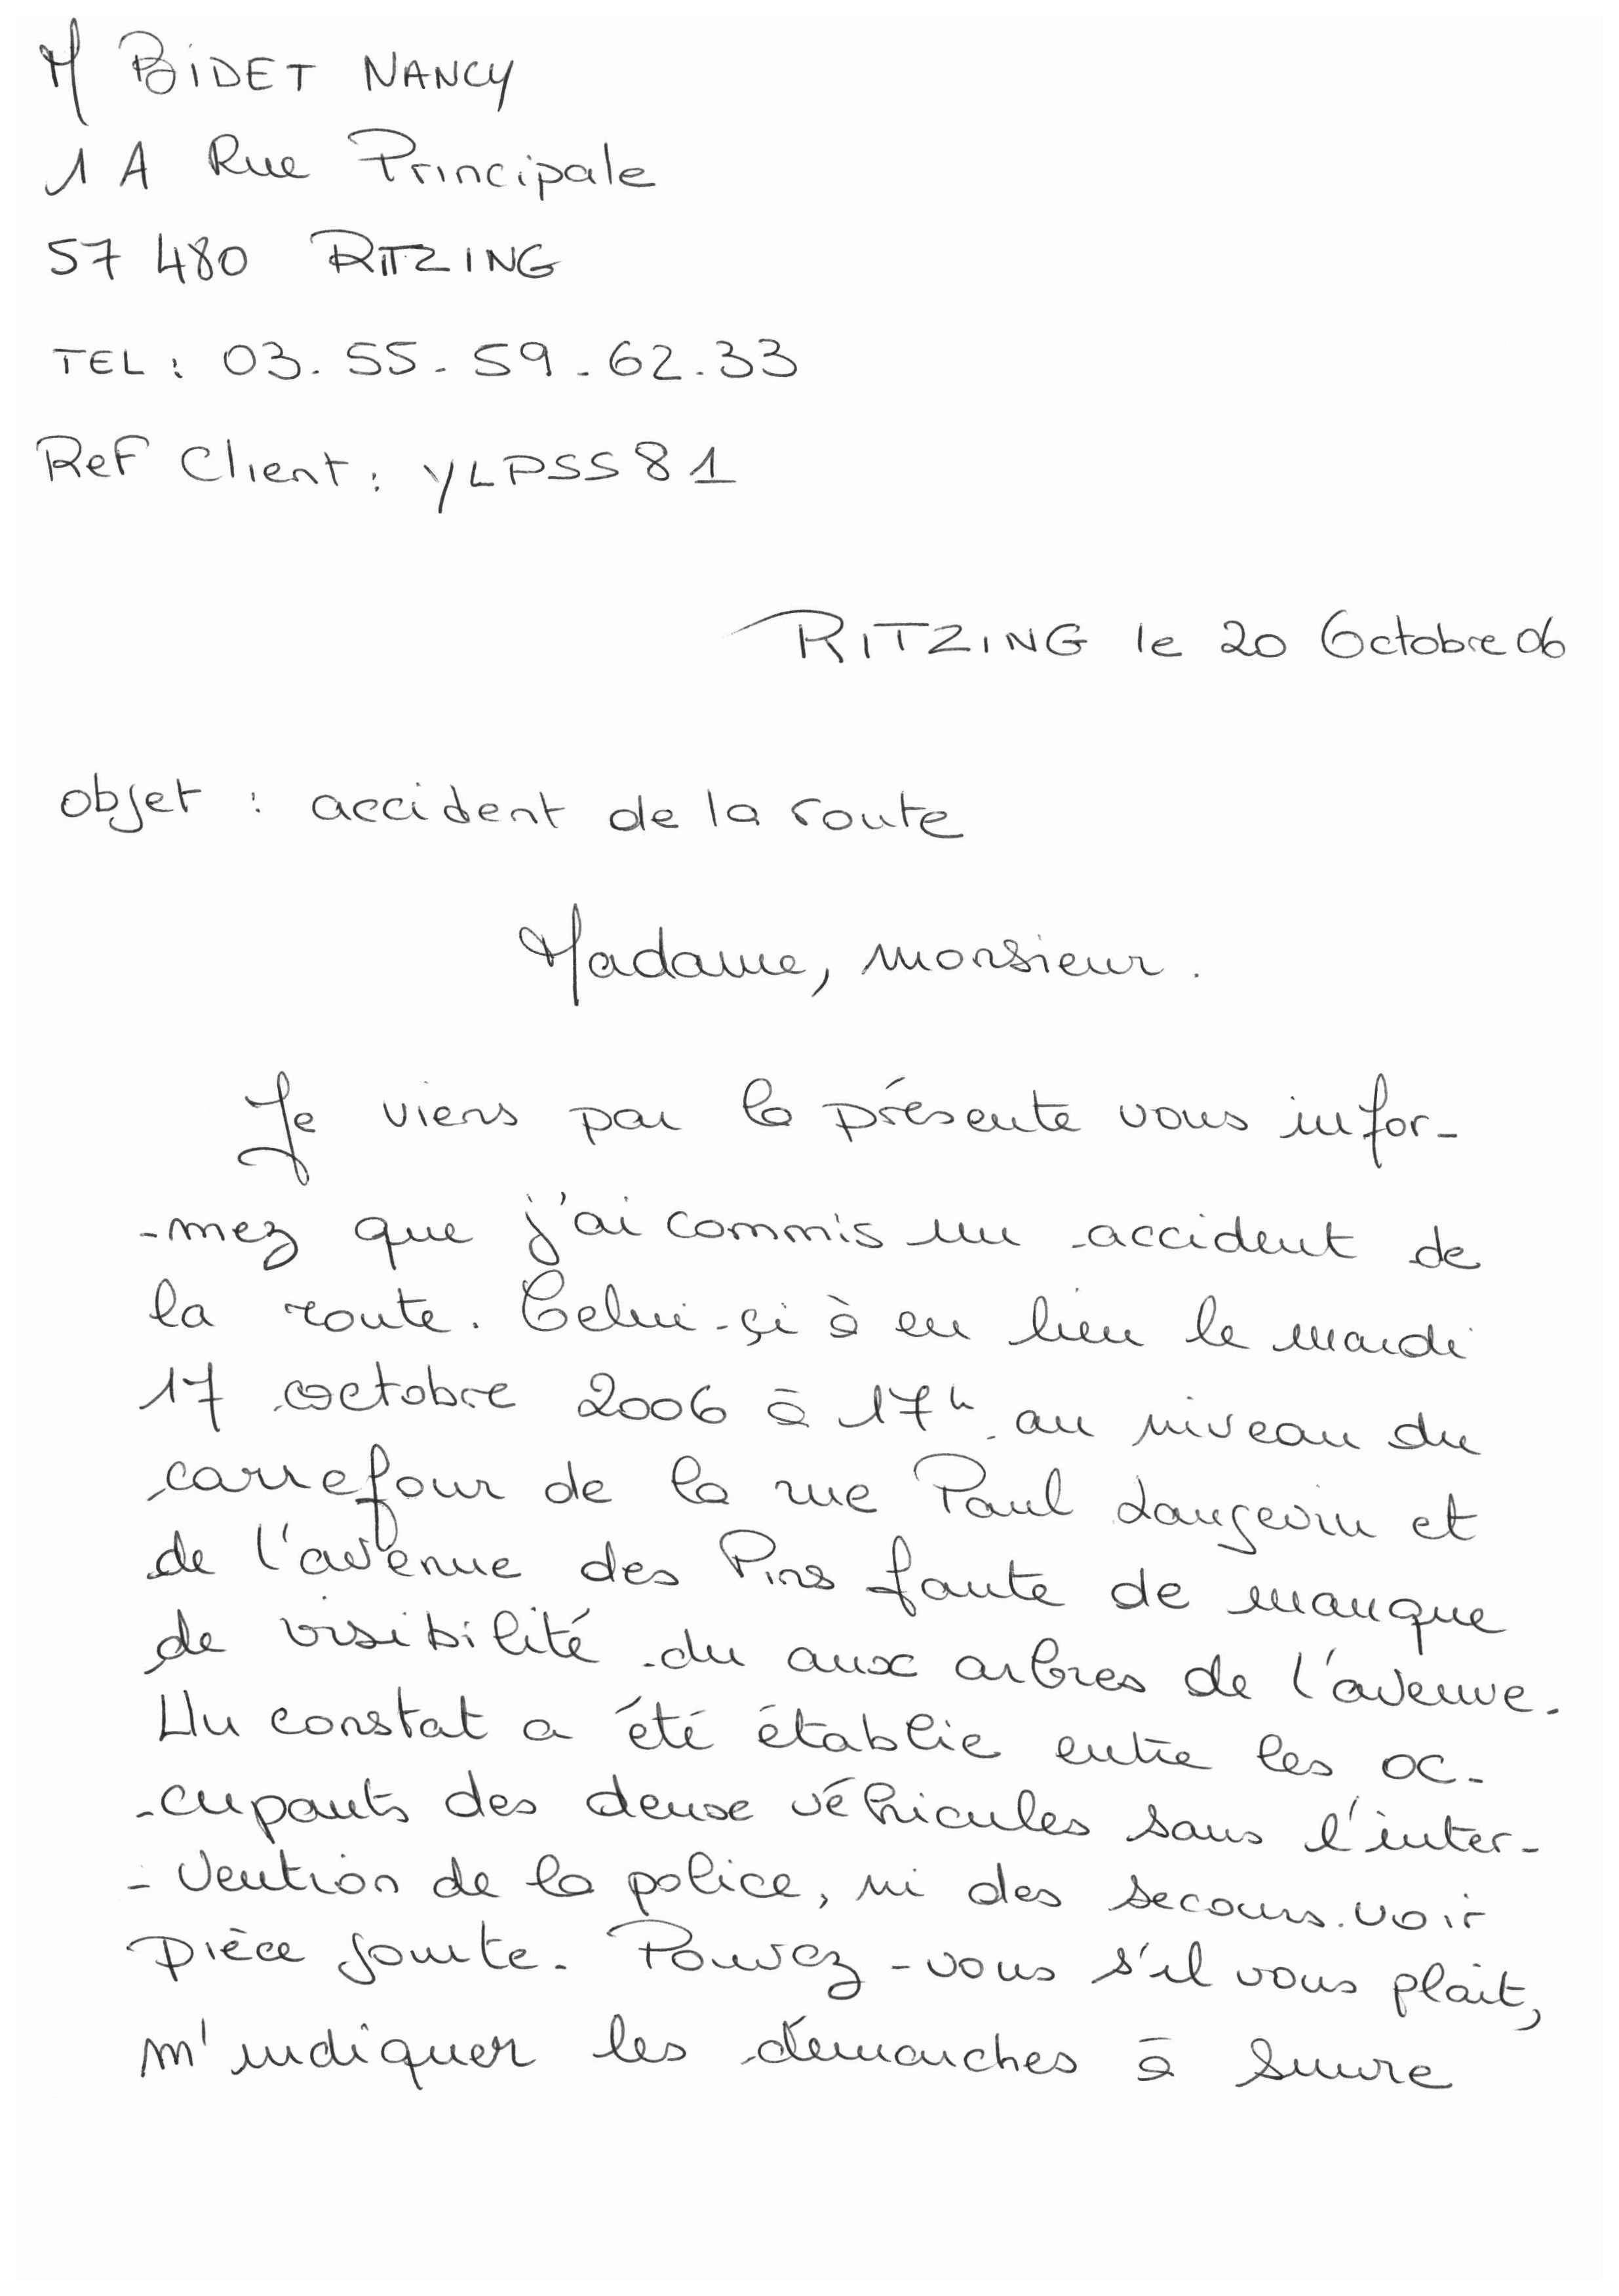 M BIDET NANCY
1 A Rue Principale
57 480 RITZING
TEL : 03. 55. 59. 62. 33
Ref Client : YLPSS81
RITZING le 20 Octobre 06
objet : accident de la route
Madame, monsieur.
Je viens par la présente vous infor-
-mez que j'ai commis un accident de
la route. Celui-çi à eu lieu le mardi
17 octobre 2006 à 17h au niveau du
carrefour de la rue Paul Langevin et
de l'avenue des Pins faute de manque
de visibilité du aux arbres de l'avenue.
Un constat a été établie entre les oc-
-cupants des deux véhicules sans l'inter-
-vention de la police, ni des secours. voir
pièce jointe. Pouvez-vous s'il vous plait,
m'indiquer les démarches à suivre